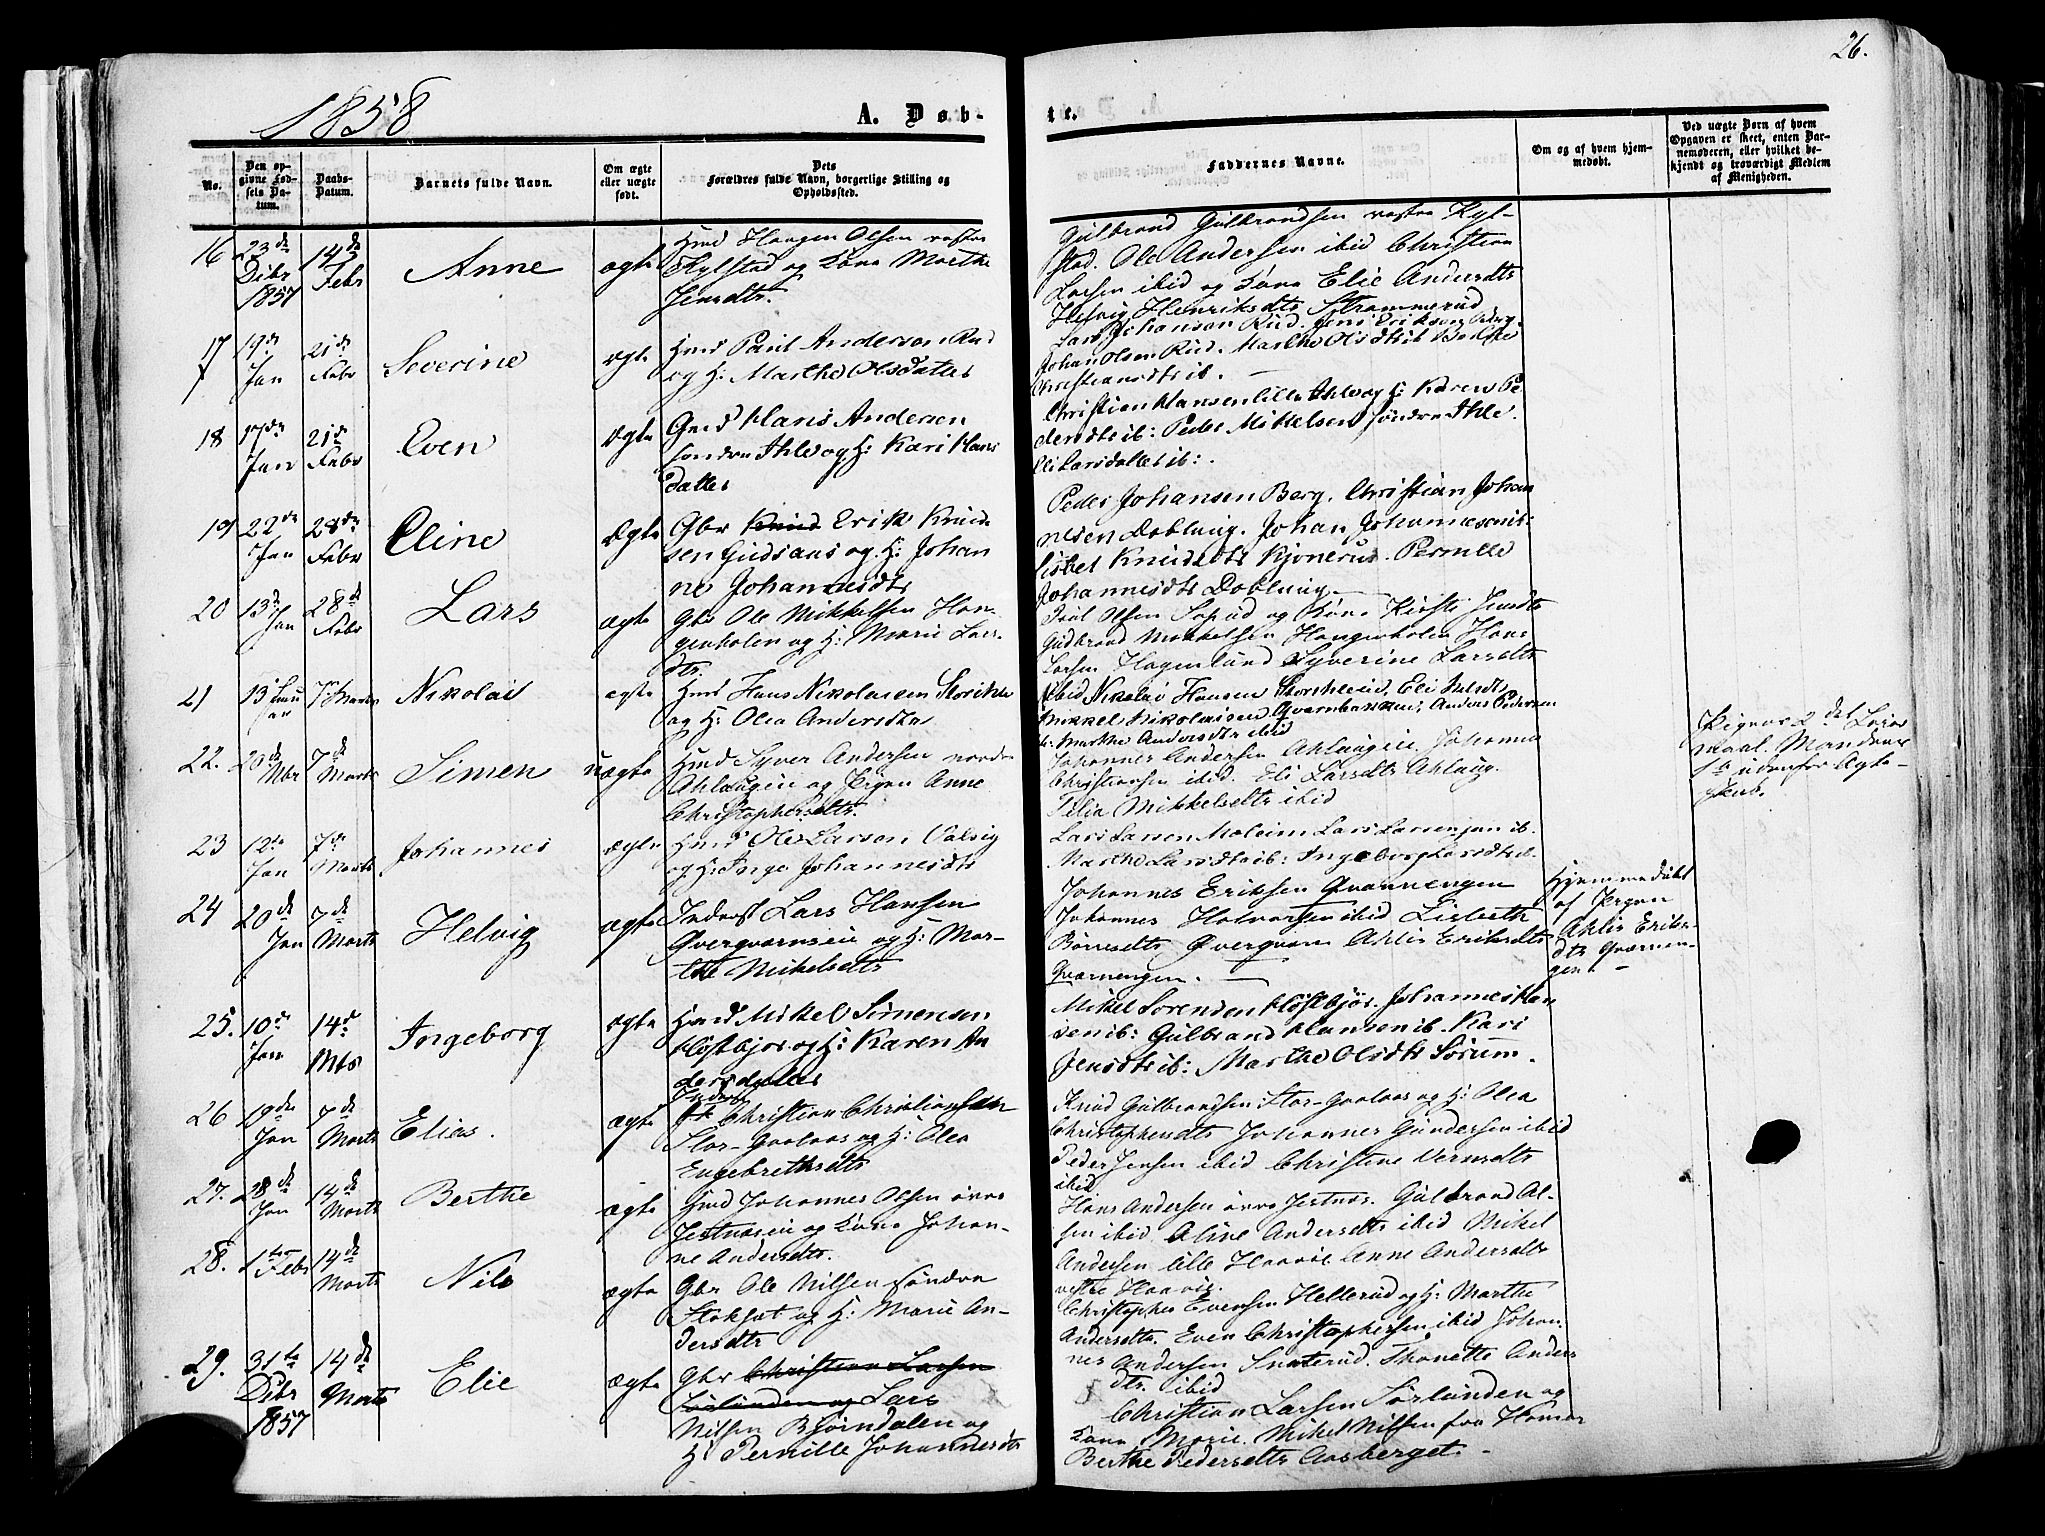 26.
1858
A. Døb-
te.
No.
Den op-
givne Fød-
sels Da-
tum.
Daabs-
Datum.
Barnets fulde Navn.
Om ægte
eller uægte
født.
Dets
Forældres fulde Navn, borgerlige Stilling og
Opholdssted.
Faddernes Navne.
Om og af hvem hjem-
medøbt.
Ved uægte Børn af hvem
Opgaven er skeet, enten Bar-
nemoderen, eller hvilket be-
kjendt og troværdigt Medlem
af Menigheden.
16
23de
Dcbr
1857
14de
Febr
Anne
ægte
Hmd Haagen Olsen vestre
Kylstad og Kone Marthe
Jensdtr.
Gulbrand Gulbrandsen vestre Kyl-
stad. Ole Andersen ibid Christian
Larsen ibid og Kone Elie Andersdtr
Helvig Henriksdtr Strammerud
17
19de
Jan
21de
Febr
Severine
ægte
Hmd Paul Anderson Rud
og H: Marthe Olsdatter
Lars Johanson Rud. Jens Erikson
Johan Olsen Rud. Marthe Olsdtr ib
Christiansdtr ib. –
18
17de
Jan
21de
Febr
Even
ægte
Gmd Hans Andersen
søndre Ihle og H: Kari Hans
datter
Christian Hansen lille Ihle og H: Karen Pe
dersdtr ib: Peder Mikkelsen søndre Ihle.
Eli Larsdatter ib:.
19
22de
Jan
28de
Febr
Eline
Ægte
Gbr Knud Erik Knud
sen Gudsaus og H: Johan
ne Johannesdtr
Peder Johansen Berg. Christian Johan
nesen Dobloug. Johan Johannesen ib:
Lisbet Knudsdtr Kjonerud. Pernille
Johannesdtr Dobloug. –
20
13de
Jan
28de
Febr
Lars
ægte
Gbr Ole Mikkelsen Hau-
genholen og H: Marie Lars-
dtr.
Poul Olsen og Kone Kirsti Jensdtr
Gudbrand Mikkelsen Haugenholen Hans
Larsen Hagenlund Syverine Larsdtr
21
13
Jan
7de Marts
Nikolai
ægte
Hmd Hans Nikolaisen
og H: Olea Andersdtr
ibid Nikolai Hansen Eli
Mikkel Nikolaisen Qvernbakken, Anders Pedersen
Marthe Andersdtr ibid
22.
20de
Nbr
7de
Marts
Simen
uægte
Hmd Syver Andersen nordre
Ahlougeie og Pigen Anne
Christophersdtr.
Johannes Andersen Ahlougeie. Johannes
Christiansen ibid. Eli Larsdtr Ahloug.
Mikkelsdtr ibid
Pigens 2det Leier
maal. Mandens
1te udenfor Ægte-
skab.
23
12te
Jan
7de
Marts
Johannes
ægte
Hmd Ole Larsen Valsig
og H: Inge Johannesdtr
Lars Larsen Moleim Lars Larsen jun ib.
Marthe Larsdtr ib: Ingeborg Larsdtr ib.
24
20de
Jan
7de
Marts
Helvig
ægte
Inderst Lars Hansen
Qvergvarnseie og H: Mar-
the Mikelsdtr
Johannes Eriksen Qvarnengen
Johannes Halvorsen ibid Lisbeth
Qvergvarn Ahlis Eriksdtr
Qvarnengen. –
Hjemmedøbt
af Pigen
Ahlis Eriks-
dtr Qvarnen-
gen. –
25.
10de
Jan
14de
Mts
Ingeborg
ægte
Hmd Mikel Simensen
Kløstbjør og H: Karen An
dersdatter
Mikel Sorensen Kløstbjør. Johannes Han
sen ib: Gulbrand Hansen ib. Kari
Jensdtr ib: Marthe Olsdtr Sorum.
26
19de
Jan
7de
Marts
Elias.
ægte
Inderst
Christian Christiansen
Stor-Gaalaas og H: Olea
Engebrethsdtr
Knud Gulbrandsen Stor-Gaalaas og H: Olea
Christophersdtr Johannes Gundersen ibid
Peder Jensen ibid Christine
ibid
27.
28de
Jan
14de
Marts
Berthe
ægte
Hmd Johannes Olsen øvre
Jestnæseie og Kone Johan-
ne Andersdtr.
Hans Andersen øvre Jestnæs. Gulbrand Ol-
sen ibid Aline Andersdtr ibid Mikel
Andersen lille Anne Andersdtr
vestre
28.
1te Febr
14de
Marts
Nils
ægte
Gbr Ole Nilsen søndre
og H: Marie An-
dersdtr
Christopher Evensen Hellerud og H: Marthe
Andersdtr. Even Christophersen ibid Johan-
nes Andersen Thonette Anders
dtr. ibid
29.
31te
Dcbr
1857
14de
Marts
Elie
ægte
Gbr Christian Larsen
Sørlunden og Lars
Nilsen Bjørndalen og
H Pernille Johannesdtr
Christian Larsen Sørlunden og
Kone Marie. Mikel Nilsen fra Hamar
Berthe Pedersdtr Aasberget. –